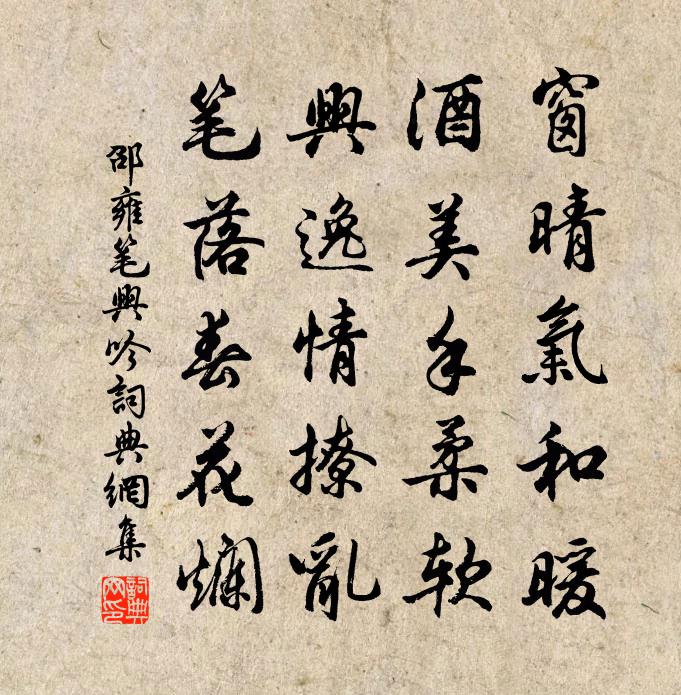 窗晴氣和暖
酒美手柔軟
興逸情撩亂
笔落春花爛
邵雍笔興吟詞典網集
詞典网印